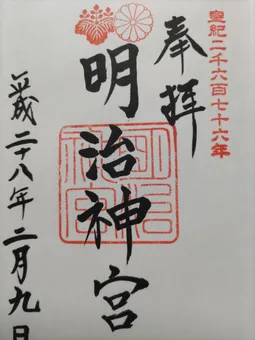 皇紀二千六百七十六年
奉拝
明治神宮
平成二十八年二月九日